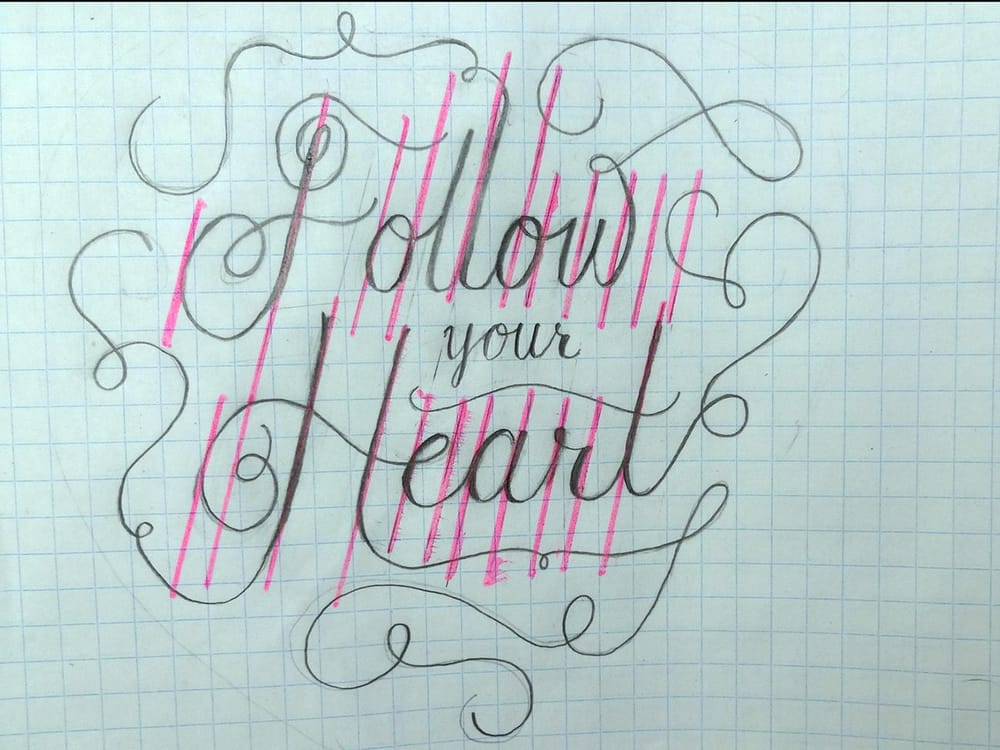 Follow
your
Heart